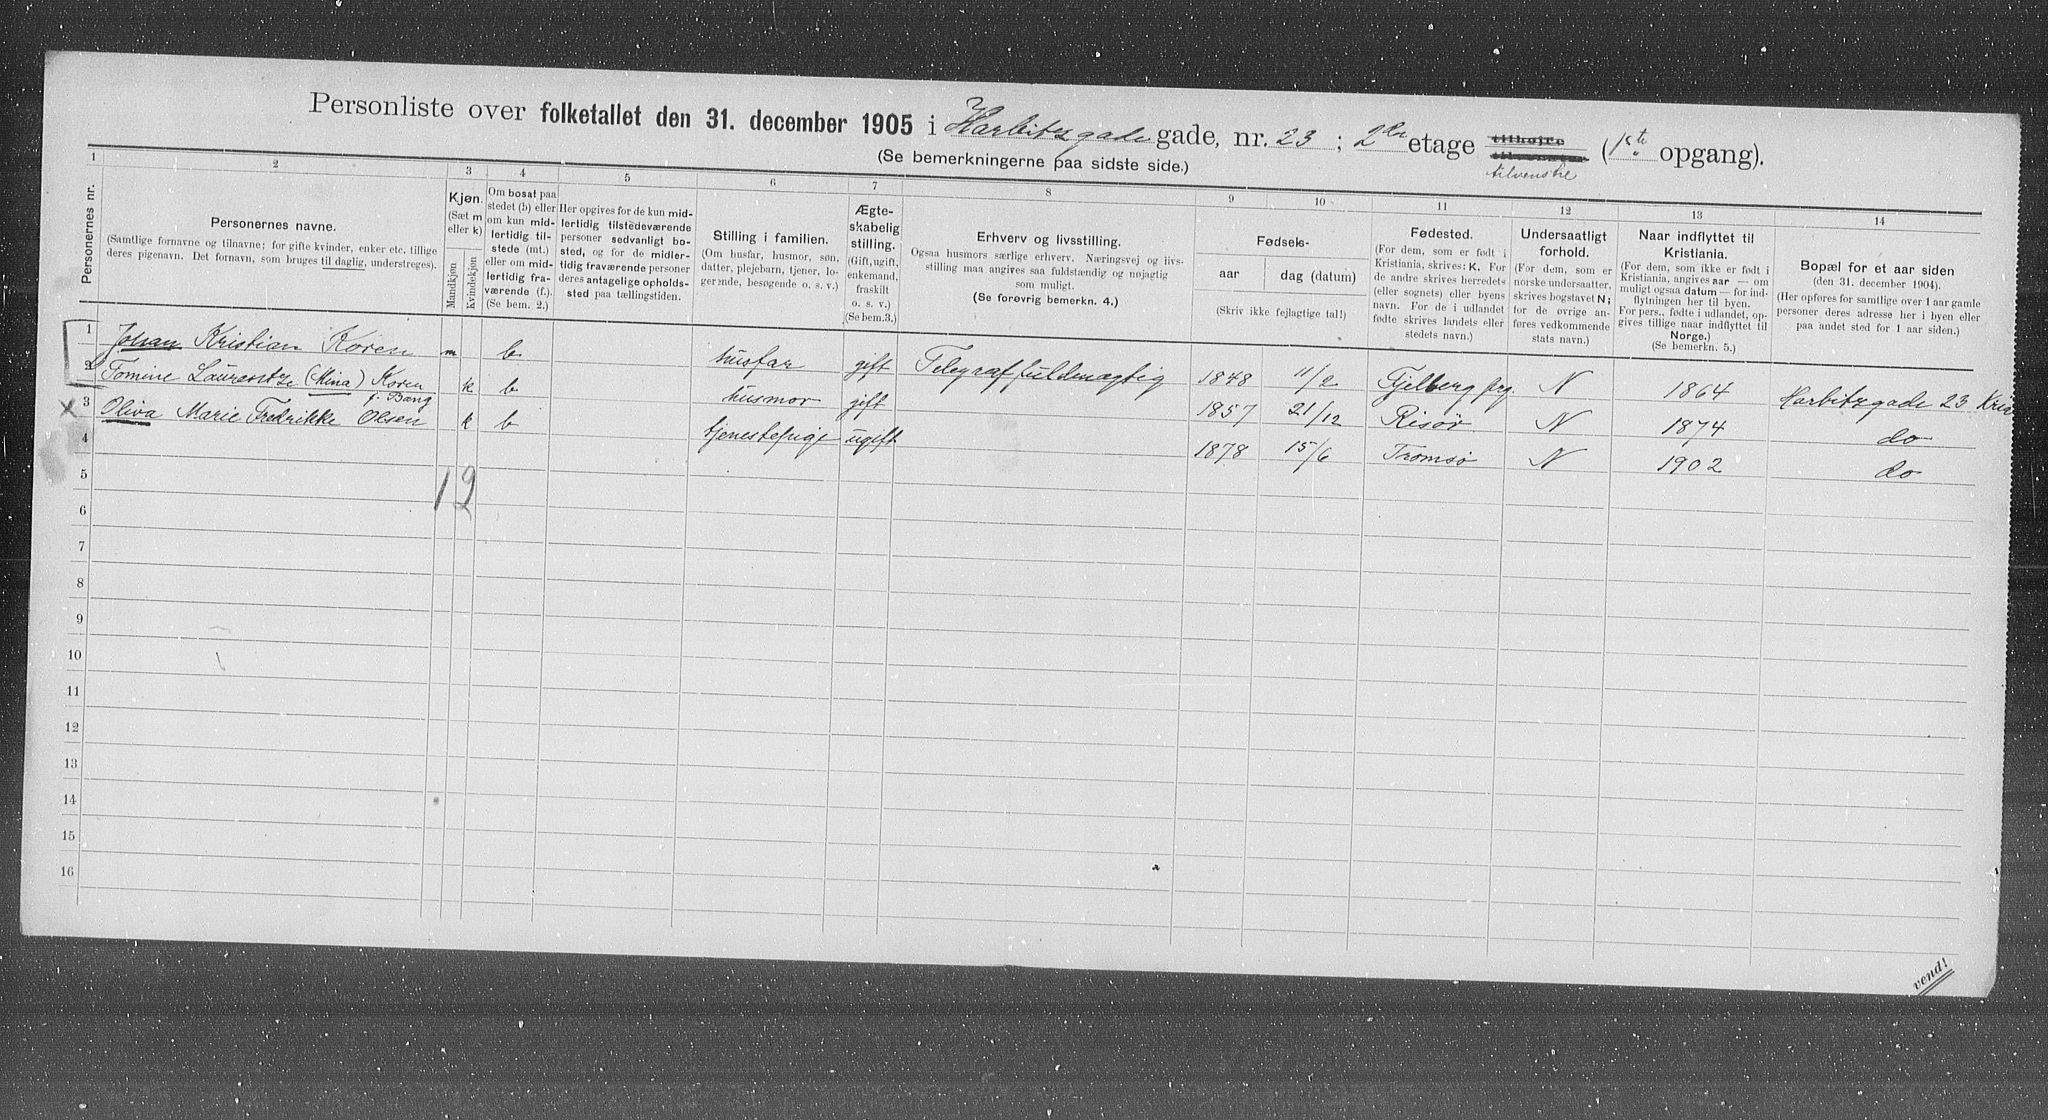 Personliste over folketallet den 31. december 1905 i Harbitzgade gade, nr. 23 ; 2den etage tilhøjre tilvenstre (1ste opgang).
(Se bemerkningerne paa sidste side.)
tilvenstre
1 2 3 4 5 6 7 8 9 10 11 12 13 14
Personernes nr.
Personernes navne.
(Samtlige fornavne og tilnavne; for gifte kvinder, enker etc. tillige
deres pigenavn. Det fornavn, som bruges til daglig, understreges).
Kjøn.
(Sæt m
eller k)
Mandkjøn
Kvindekjøn
Om bosat paa
stedet (b) eller
om kun mid-
lertidig til-
stede (mt.)
eller om mid-
lertidig fra-
værende (f.).
(Se bem. 2.)
Her opgives for de kun mid-
lertidig tilstedeværende
personer sedvanlig bo-
sted, og for de midler-
tidig fraværende personer
deres antagelige opholds-
sted paa tællingstiden.
Stilling i familien.
(Om husfar, husmor, søn,
datter, plejebarn, tjener, lo-
gerende, besøgende o. s. v.)
Ægte-
skabelig
stilling.
(Gift, ugift,
enkemand,
fraskilt
o. s. v.)
(Se bem.3.)
Erhverv og livsstilling.
Ogsaa husmors særlige erhverv. Næringsvej og livs-
stilling maa angives saa fuldstændig og nøjagtig
som muligt.
(Se forøvrig bemerkn. 4.)
Fødsels-
aar dag (datum)
(Skriv ikke fejlagtige tal!)
Fødested.
(For dem, som er født i
Kristiania, skrives: K. For
de andre skrives herredets
(eller sognets) eller byens
navn. For de i udlandet
fødte skrives landets eller
stedets navn.)
Undersaatligt
forhold.
(For dem, som er
norske undersaatter,
skrives bogstavet N;
for de øvrige an-
føres vedkommende
stats navn.)
Naar indflyttet til
Kristiania.
(For dem, som ikke er født i
Kristiania, angives aar — om
muligt ogsaa datum — for ind-
flytningen her til byen.
For pers., fødte i udlandet, op-
gives tillige naar indflyttet til
Norge.)
(Se bemerkn. 5.)
Bopæl for et aar siden
(den 31. december 1904).
(Her opføres for samtlige over 1 aar gamle
personer deres adresse her i byen eller
paa andet sted for 1 aar siden.)
1 Johan Kristian Koren m b husfar gift Telegraffuldmægtig 1848 11/2 Fjelberg prg. N 1864 Harbitzgade 23 Kria
2 Tomine Laurentze (Mina) Koren f. Bang k b husmor gift 1857 21/12 Risør N 1874 do
x 3 Oliva Marie Fredrikke Olsen k b tjenestepige ugift 1878 15/6 Tromsø N 1902 do
4
5
1 2
6
7
8
9
10
11
12
13
14
15
16
vend!